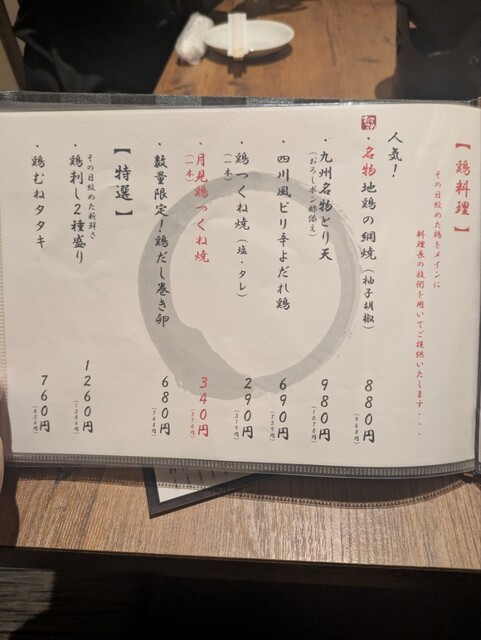 【鶏料理】
その日絞めた鶏をメインに
料理長の技術を用いてご提供いたします...
人気！
・名物地鶏の網焼（柚子胡椒）
880円
（968円）
・九州名物とり天
（おろしポン酢添え）
980円
（1078円）
・四川風ピリ辛よだれ鶏
690円
（759円）
・鶏つくね焼（塩・タレ）
（一本）
290円
（319円）
・月見鶏つくね焼
（一本）
340円
（374円）
・数量限定！鶏だし巻き卵
680円
（748円）
【特選】
その日絞めた新鮮さ
・鶏刺し2種盛り
1260円
（1386円）
・鶏むねタタキ
760円
（836円）